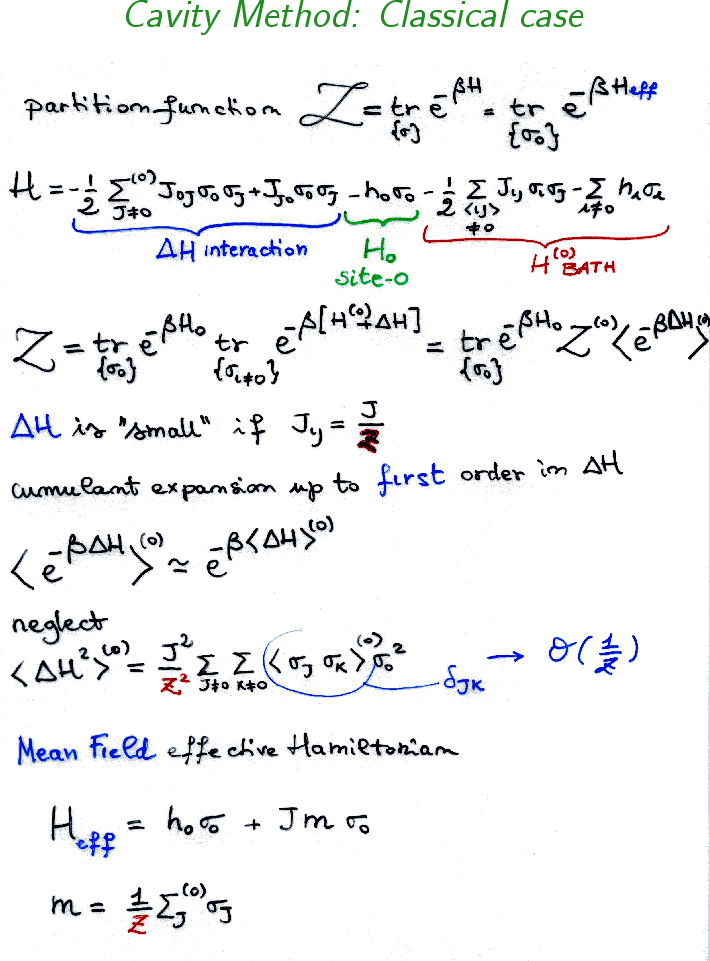 Cavity Method: Classical case
partition function Z = tr_{σ} e^{-βH} = tr_{σ₀} e^{-βH_eff}
H = -1/2 Σ^{(0)}_{J≠0} J_{0J} σ₀ σ_J + J_{J0} σ₀ σ_J - h₀σ₀ - 1/2 Σ_{<ij> ≠0} J_{ij} σ_i σ_j - Σ_{i≠0} h_i σ_i
ΔH interaction H₀ H^{(0)} BATH
site-0
Z = tr_{σ₀} e^{-βH₀} tr_{σ_{i≠0}} e^{-β[H^{(0)}+ΔH]} = tr_{σ₀} e^{-βH₀} Z^{(0)} <e^{-βΔH}>^{(0)}
ΔH is "small" if J_{ij} = J/Z
cumulant expansion up to first order in ΔH
<e^{-βΔH}>^{(0)} ≃ e^{-β<ΔH>^{(0)}}
neglect
<ΔH²>^{(0)} = J²/Z² Σ_{J≠0} Σ_{K≠0} <σ_J σ_K>^{(0)} σ₀² δ_{JK} → O(1/Z)
Mean Field effective Hamiltonian
H_eff = h₀σ₀ + Jm σ₀
m = 1/Z Σ_J^{(0)} σ_J